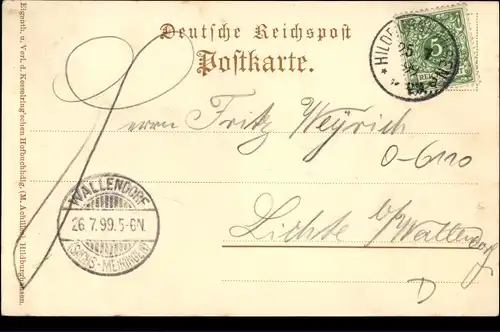 Eigenth. u. Verl. d. Kesselring'schen Hofbuchhdlg. (M. Achilles) Hildburghausen.
Deutsche Reichspost
Postkarte.
25
5
Herrn Fritz Weyrich
0-6110
WALLENDORF
26.7.99.5-6N.
(SACHS.-MEININGEN)
Lichte b/Wallendorf
D